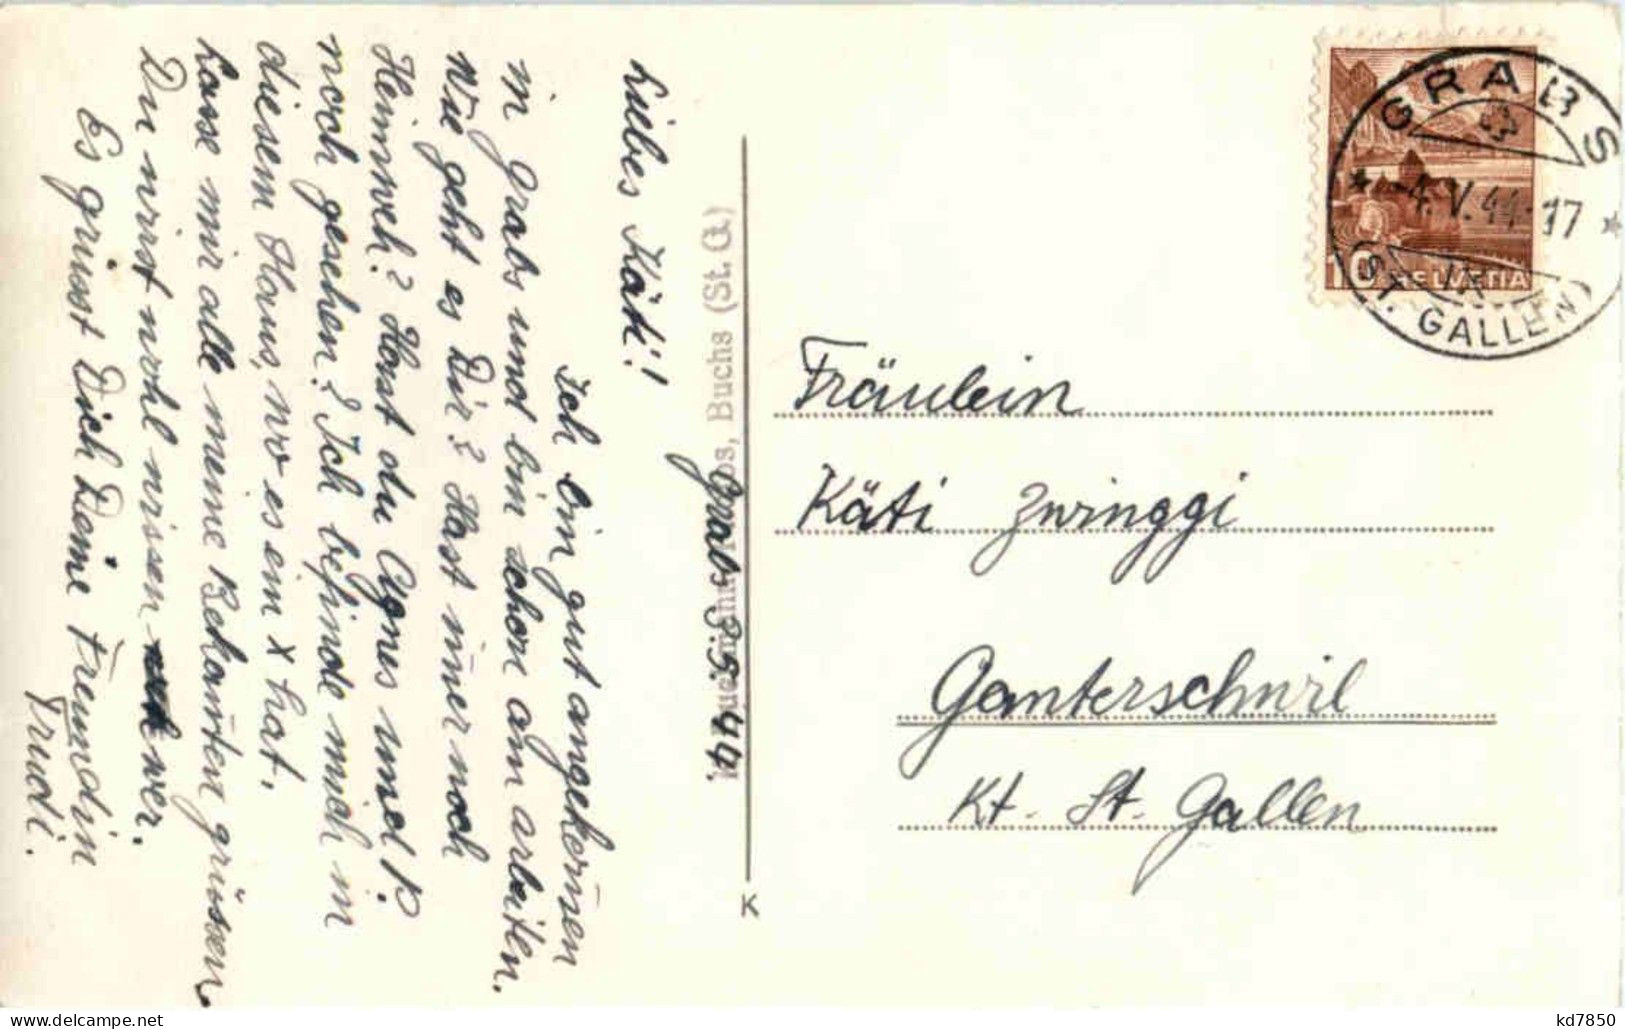 Grabs 3.5.44.
Liebes Käti!
Ich bin gut angekom̄en
in Grabs und bin schon am arbeiten.
Wie geht es Dir? Hast im̄er noch
Heimweh? Hast du Agnes und P.
noch gesehen? Ich befinde mich in
diesem Haus, wo es ein x hat.
Lasse mir alle meine Bekan̄ten grüssen
Du wirst wohl wissen wer.
Es grüsst Dich Deine Freundin
Trudi.
Buchs (St. G.)
K
GRABS
-4.V.44-17
(ST. GALLEN)
10 HELVETIA
Fräulein
Käti Zwinggi
Ganterschwil
Kt. St. Gallen
kd7850